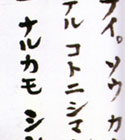 アイ。ソウカ
テルコトニシマ
ナルカモシ